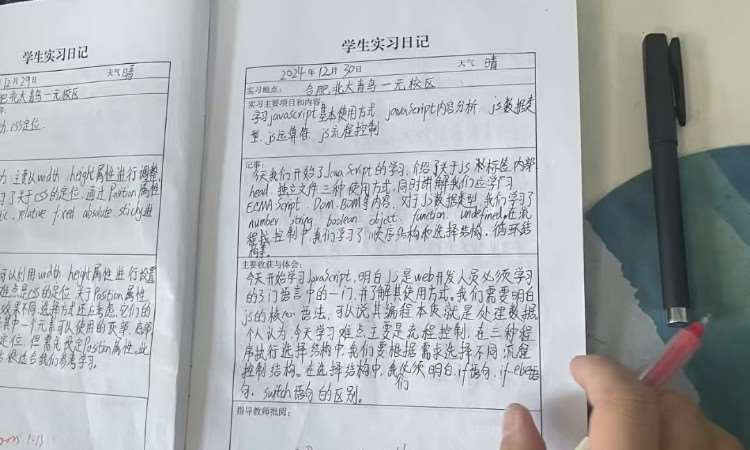 学生实习日记
12月29日 天气 晴
肥北大青鸟一元校区
css定位.
主要从width height属性进行调整
了关于css的定位,通过Position属性
relative fixed absolute sticky进
可以利用width height属性进行设置
难点是css的定位 关于Position属性
元素可以使用的
定位,但需先设定Position属性.
学生实习日记
2024年12月30日 天气 晴
实习地点: 合肥北大青鸟一元校区
实习主要项目和内容:
学习javascript基本使用方式 javascript内容分析 js数据类
型、js运算符 js流程控制
记事:
今天我们开始了JavaScript的学习,介绍了关于js 标签内部
head、独立文件三种使用方式,同时讲解我们应学习
ECMAScript Dom、Bom等内容,对于Js数据类型,我们学习了
number string boolean object function undefined,在流
程控制中,我们学习了顺序结构和选择结构、循环结
构等.
主要收获与体会:
今天开始学习javascript,明白js是web开发人员必须学习
的3门语言中的一门,并了解其使用方式。我们需要明白
js的核心语法,可以说其编程本质就是处理数据
个人认为今天学习难点主要是流程控制,在三种程
序执行选择结构中,我们要根据需求选择不同流程
控制结构。在选择结构中,我们必须明白if语句、if-else语
句、switch语句的区别。
指导教师批阅: